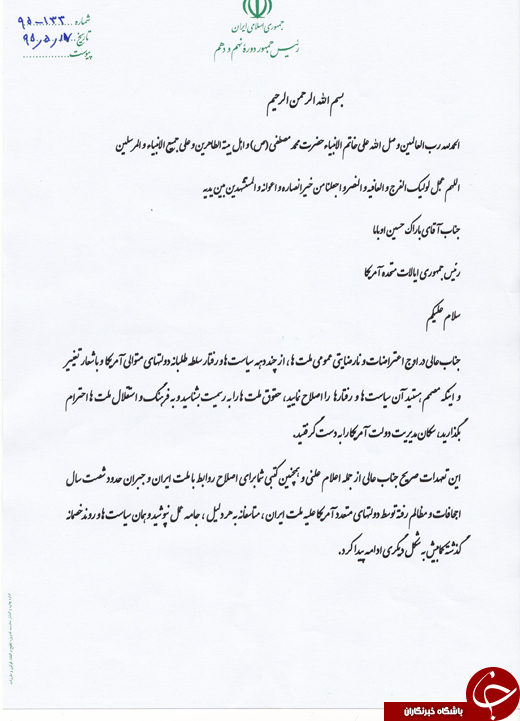 جمهوری اسلامی ایران
رئیس جمهور دوره نهم و دهم
شماره ۱۳۳-۹۵
تاریخ ۹۵٫۵٫۱۷
پیوست
بسم الله الرحمن الرحیم
الحمدلله رب العالمین و صل الله علی خاتم الانبیاء حضرت محمد مصطفی (ص) و اهل بیته الطاهرین و علی جمیع الانبیاء و المرسلین
اللهم عجل لولیک الفرج و العافیه و النصر و اجعلنا من خیر انصاره و اعوانه و المستشهدین بین یدیه
جناب آقای باراک حسین اوباما
رئیس جمهوری ایالات متحده آمریکا
سلام علیکم
جناب عالی در اوج اعتراضات و نارضایتی عمومی ملت ها، از چند دهه سیاست ها و رفتار سلطه طلبانه دولتهای متوالی آمریکا و با شعار تغییر
و اینکه مصمم هستید آن سیاست ها و رفتارها را اصلاح نمایید، حقوق ملت ها را به رسمیت بشناسید و به فرهنگ و استقلال ملت ها احترام
بگذارید، سکان مدیریت دولت آمریکا را به دست گرفتید.
این تعهدات صریح جناب عالی از جمله اعلام علنی و همچنین کتبی شما برای اصلاح روابط با ملت ایران و جبران حدود شصت سال
اجحافات و مظالم رفته توسط دولتهای متعدد آمریکا علیه ملت ایران، متاسفانه به هر دلیل، جامه عمل نپوشید و همان سیاست ها و روند خصمانه
گذشته کمابیش به شکل دیگری ادامه پیدا کرد.
باشگاه خبرنگاران